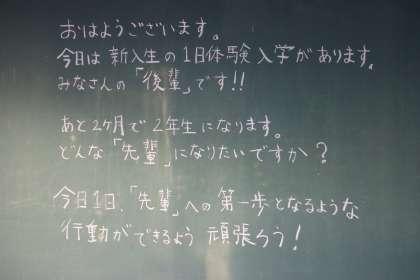 おはようございます。
今日は新入生の1日体験入学があります。
みなさんの「後輩」です!!
あと2ヶ月で2年生になります。
どんな「先輩」になりたいですか？
今日1日、「先輩」への第一歩となるような
行動ができるよう頑張ろう！